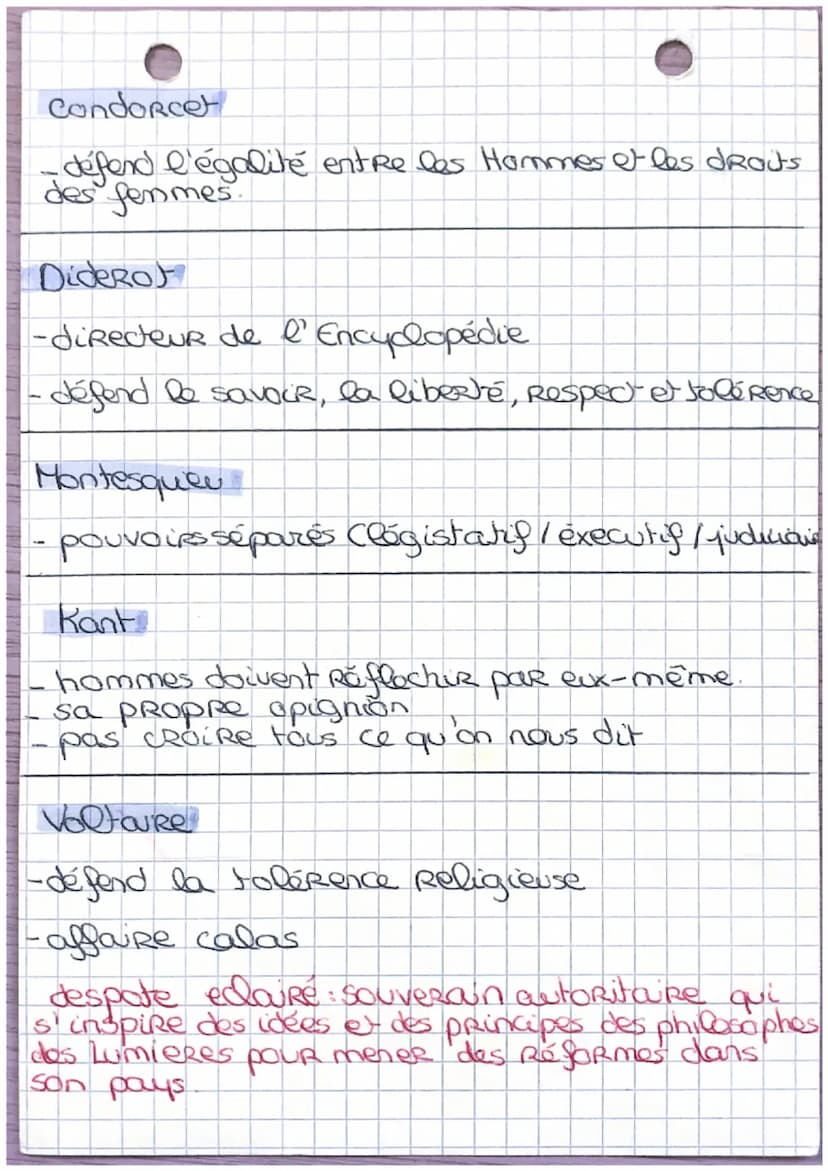 Condorcet
- défend l'égalité entre les Hommes et les droits
des femmes.
Diderot
- directeur de l'Encyclopédie
- défend le savoir, la liberté, respect et tolérence
Montesquieu
- pouvoirs séparés (légistatif / éxecutif / judiciair
Kant
- hommes doivent réflechir par eux-même.
- sa propre opignion
- pas croire tous ce qu'on nous dit
Voltaire
- défend la tolérence religieuse
- affaire calas
despote eclairé : souverain autoritaire qui
s'inspire des idées et des principes des philosophes
des Lumieres pour mener des réformes dans
son pays.